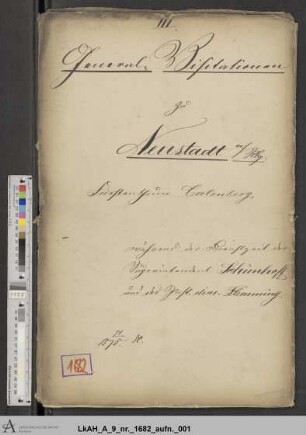 III.
General-Visitationen
zu
Neustadt a/Rbg.
Fürstenthum Calenberg.
während der Dienstzeit des
Superintendent Schünhoff
und des Past. Flemming
1682
LkAH_A_9_nr._1682_aufn._001